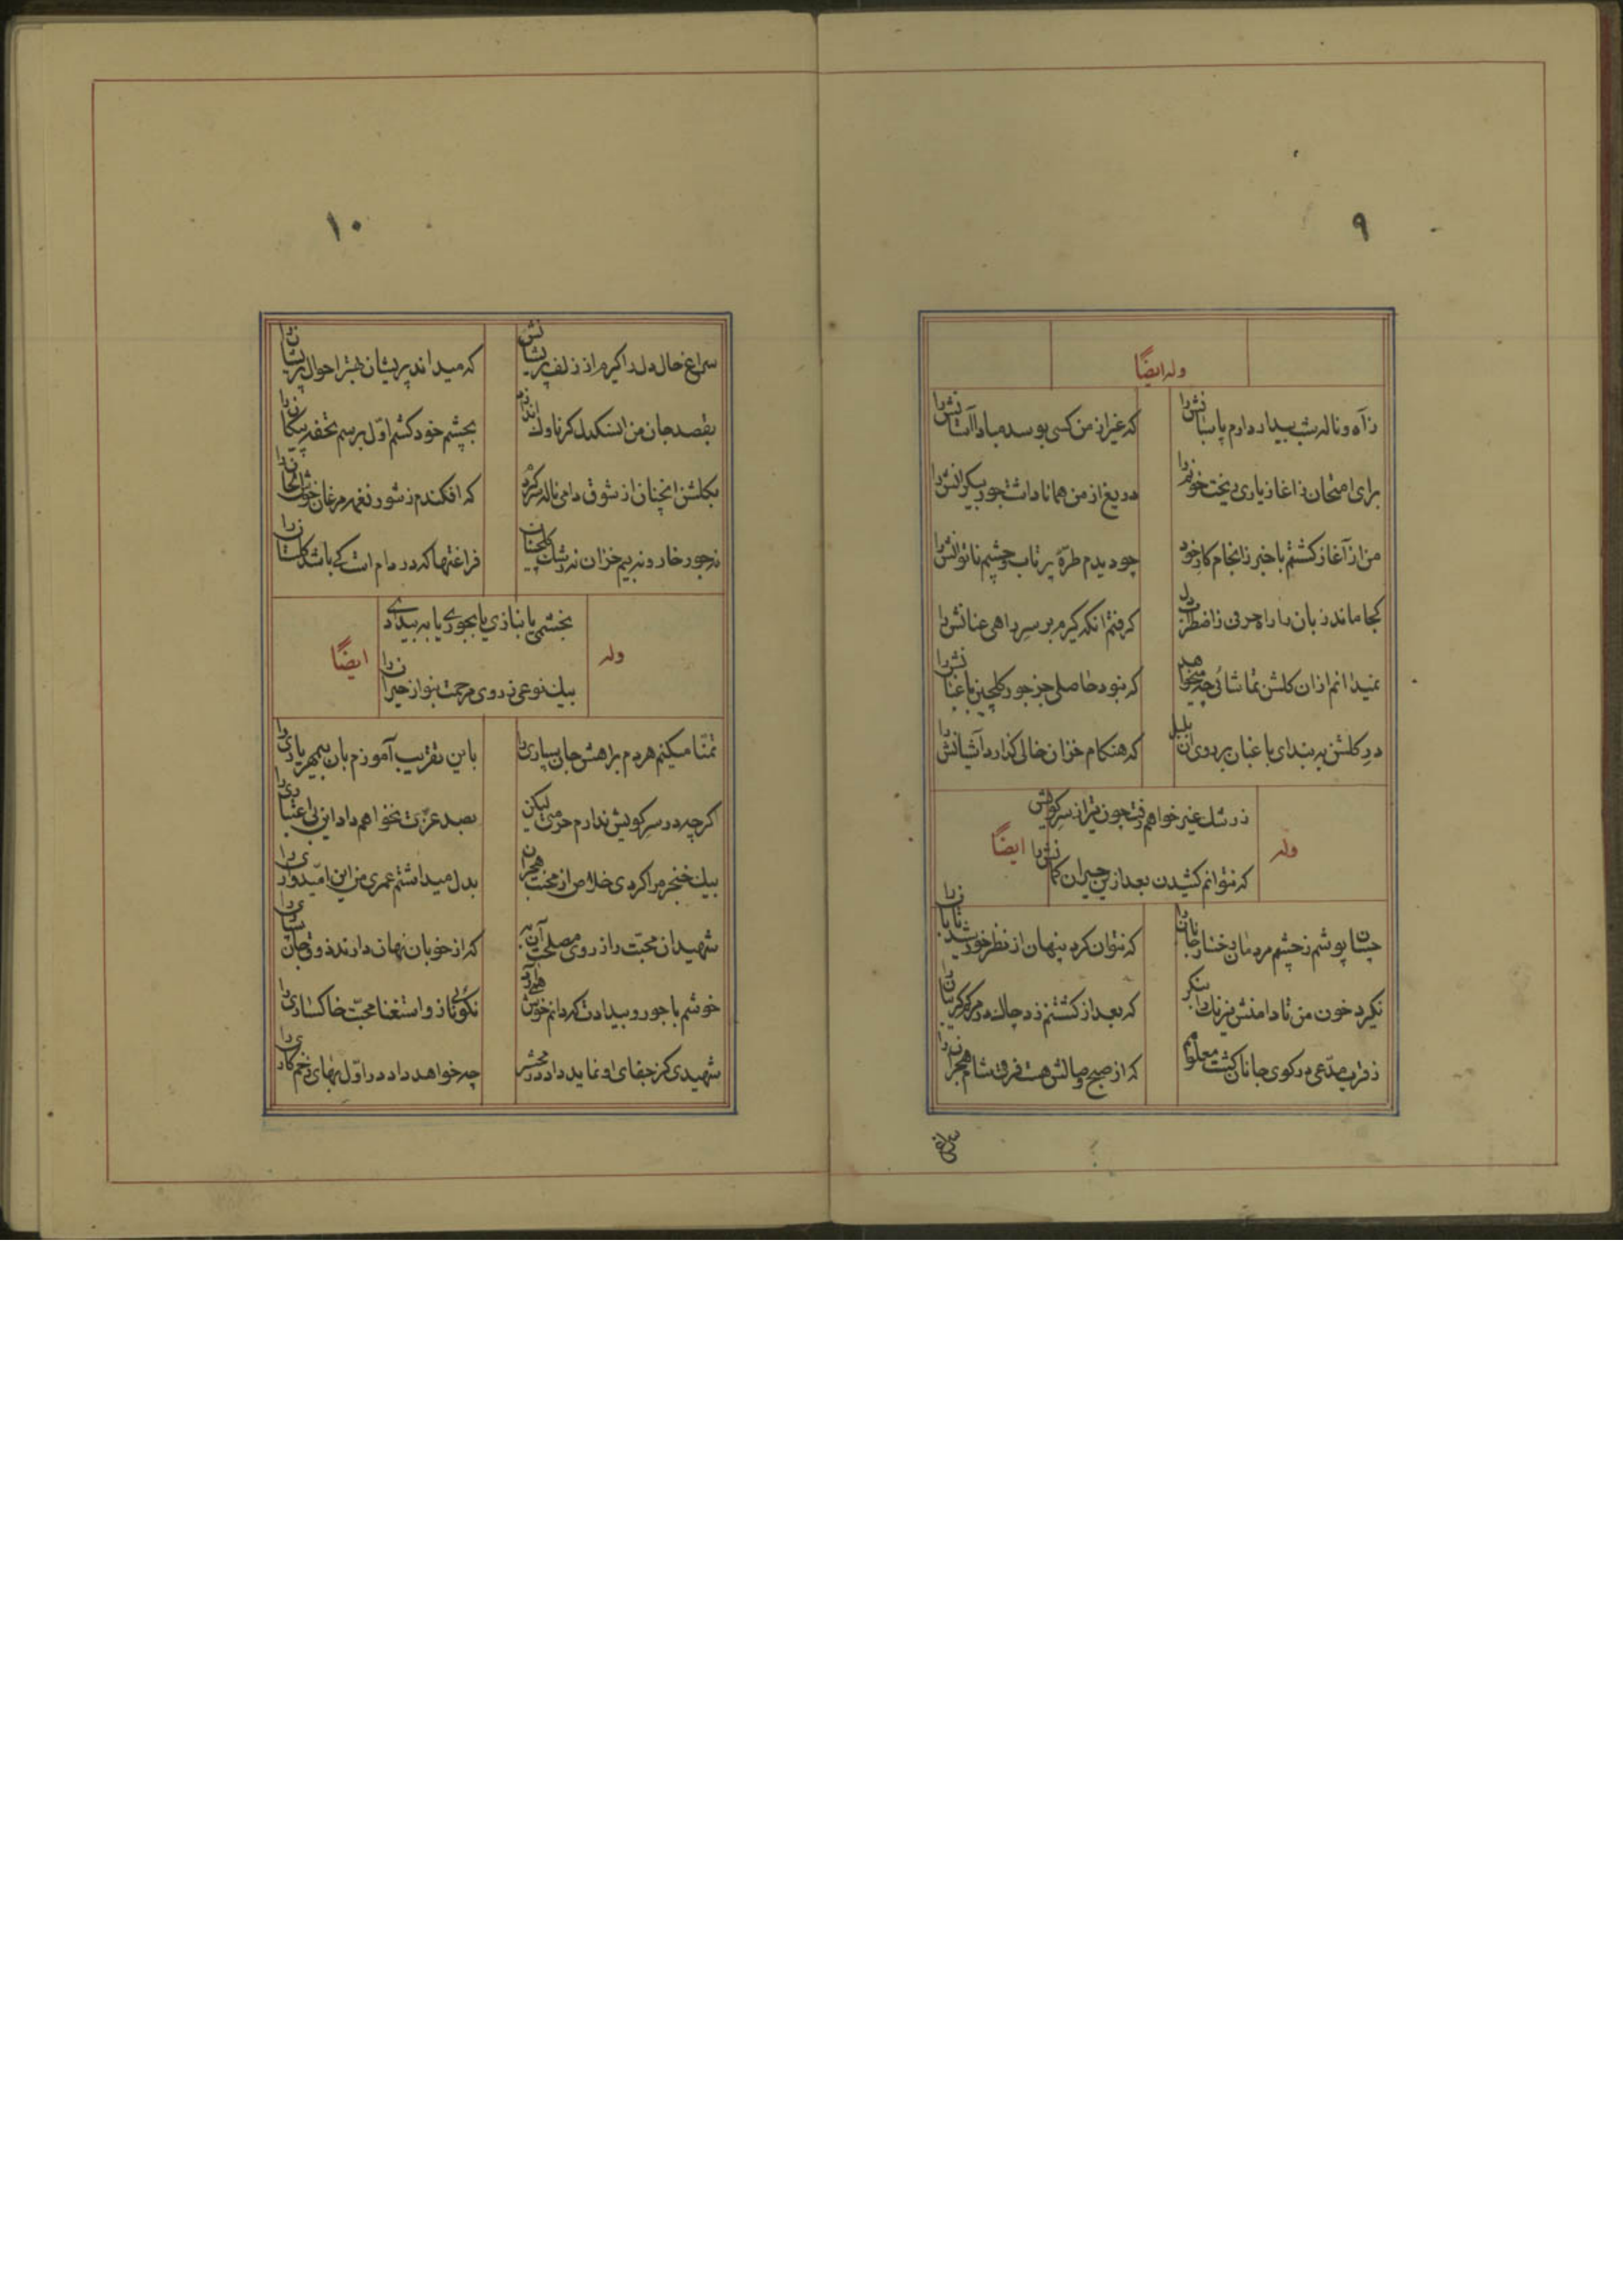 ۹
وله ایضًا
ز آه و ناله شب بیدار دارم پاسبانش را
که غیر از من کسی بوسد مباد آستانش را
برای امتحان ز اغاز یاری ریخت خونم را
دریغ از من همانا داشت جور بیکرانش را
من از آغاز کشتم با خبر ز انجام کار خود
چو دیدم طرّه پر تاب و چشم ناتوانش را
کجا ماند زبان را راه حرفی ز اضطراب دل
کرفتم انکه کیرم بر سر راهی عنانش را
نمیدانم از ان کلشن تماشائی چه میخواهد
که نبود حاصلی جز جور کلچین باغبانش را
در کلشن به بند ای باغبان بر روی ان بلبل
که هنکام خزان خالی کذارد آشیانش را
وله
ز رشک غیر خواهم رفت چون تیر از سر کویش
که نتوانم کشیدن بعد ازین حیران کمانش را
ایضًا
چسان پوشم ز چشم مردمان رخسار جانان را
که نتوان کرد پنهان از نظر خورشید تابان را
نکیرد خون من تا دامنش نیرنک را بنکر
که بعد از کشتنم زد چاک در کو کریبان را
ز قرب مدّعی در کوی جانان کشت معلوم
که از صبح وصالش هست فرقت شام هجران را
سراغ
۱۰
سراغ حال دل را کیرم از زلف پریشانش
که میداند پریشان بهتر احوال پریشان را
بقصد جان من ان سنکدل کر ناوک اندازم
بچشم خود کشم اوّل برسم تحفه پیکان را
بکلشن انچنان از شوق دامی ناله سر کردم
که افکندم ز شور نغمه مرغان خوش الحان را
نه جور خار و نه بیم خزان نه رشک کلچینان
فراغتها که در دام است کی باشد کلستان را
وله
بخشمی یا بنازی یا بجوری یا به بیدادی
بیک نوعی ز روی مرحمت بنواز حیران را
ایضًا
تمنّا میکنم هر دم براهش جان سپاری را
باین تقریب آموزم بان بیمهر یاری را
اکرچه در سر کویش ندارم حرمتی لیکن
بصد عزّت نخواهم داد این بی اعتباری را
بیک خنجر مرا کردی خلاص از محنت هجران
بدل میداشتم عمری من این امّیدواری را
شهیدان محبّت راز روی مصلحت آن به
که از خوبان نهان دارند ذوق جان سپاری را
خوشم با جور و بیدادت که دانم خوش هم آرد
نکوئی ناز و استغنا محبّت خاکساری را
شهیدی کز جفای او نماید داد در محشر
چه خواهد داد در اوّل بهای زخم کاری را